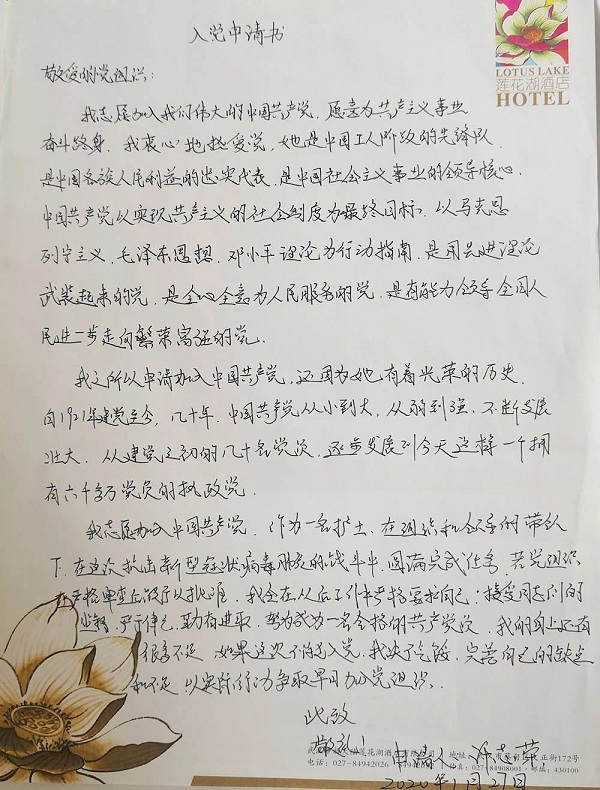 LOTUS LAKE
莲花湖酒店
HOTEL
入党申请书
敬爱的党组织:
我志愿加入我们伟大的中国共产党,愿意为共产主义事业
奋斗终身。我衷心地热爱党,她是中国工人阶级的先锋队,
是中国各族人民利益的忠实代表,是中国社会主义事业的领导核心。
中国共产党以实现共产主义的社会制度为最终目标,以马克思
列宁主义、毛泽东思想、邓小平理论为行动指南,是用先进理论
武装起来的党,是全心全意为人民服务的党,是有能力领导全国人
民进一步走向繁荣富强的党。
我之所以申请加入中国共产党,还因为她有着光荣的历史。
自1921年建党至今,几十年,中国共产党从小到大,从弱到强,不断发展
壮大。从建党之初的几十名党员,逐步发展到今天这样一个拥
有六千多万党员的执政党。
我志愿加入中国共产党。作为一名护士,在组织和领导的带领
下,在这次抗击新型冠状病毒肺炎的战斗中,圆满完成任务,若党组织
在严格审查后给予以批准,我会在从后工作中严格要求自己:接受同志们的
监督,严于律己,勤奋进取,努力成为一名合格的共产党员,我的身上还有
很多不足,如果这次不能入党,我决不气馁,完善自己的缺点
和不足,以实际行动争取早日加入党组织。
此致
敬礼!
申请人:
莲花湖酒店有限公司 地址:
正街172号
电话:027-84942026 传真:027-84908001·邮编:430100
2020年1月27日